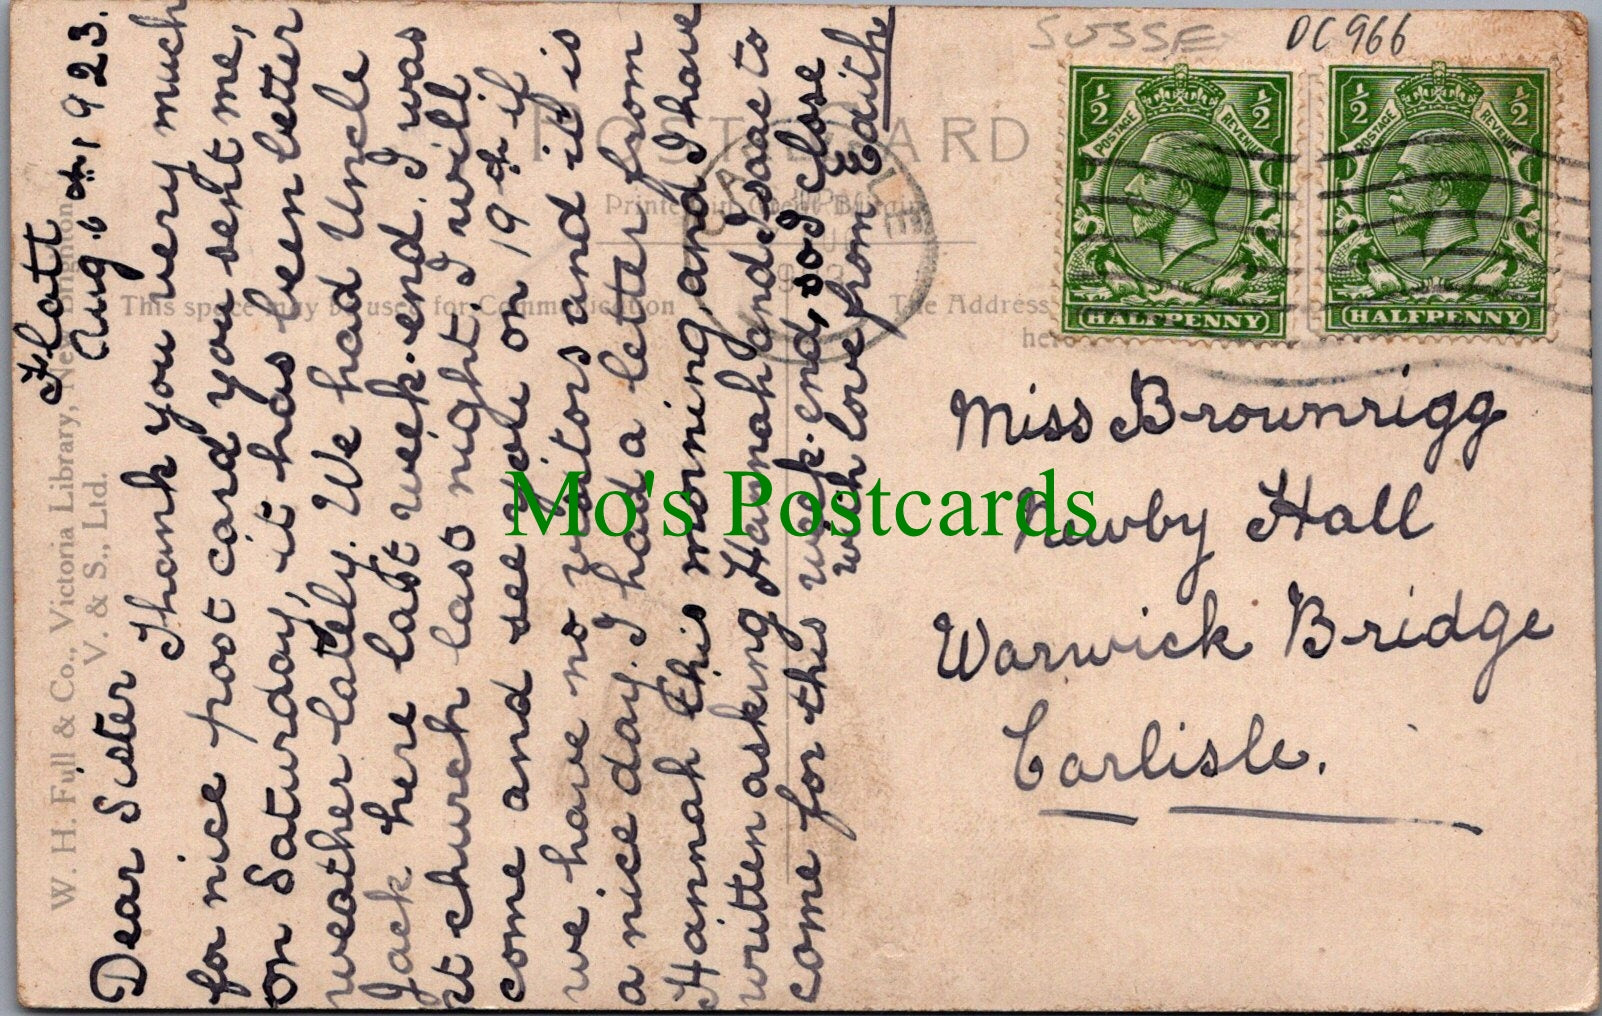 SUSSE
DC 966
POSTCARD
Printed in Great Britain
This space may be used for Communication
The Address
here
W. H. Full & Co., Victoria Library, New Brighton
V. & S., Ltd.
½ ½
POSTAGE REVENUE
HALFPENNY
½ ½
POSTAGE REVENUE
HALFPENNY
Flatt
Aug. 6th 1923.
Dear Sister
Thank you very much
for nice post card you sent me,
on Saturday, it has been better
weather lately. We had Uncle
Jack here last week-end. I was
at church last night, I will
come and see you on 19th if
we have no visitors and it is
a nice day. I had a letter from
Hannah this morning, and I have
written asking Hannah and Isaac to
come for this week-end, so I close
with love from Edith
Miss Brownrigg
Newby Hall
Warwick Bridge
Carlisle.
Mo's Postcards